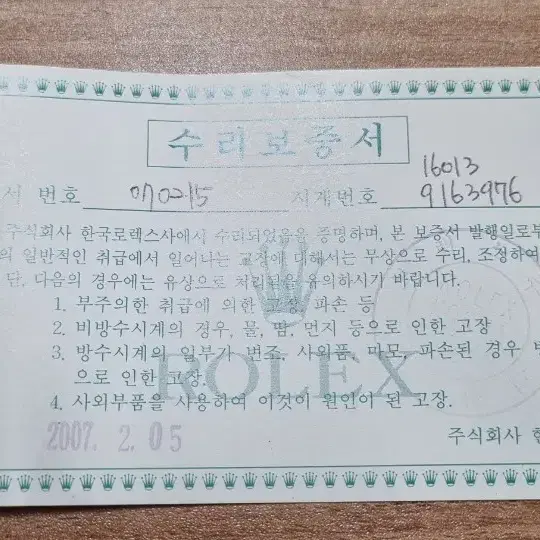 수리보증서
16013
석 번호 070215 시계번호 9163976
주식회사 한국로렉스사에서 수리되었음을 증명하며, 본 보증서 발행일로부
의 일반적인 취급에서 일어나는 고장에 대해서는 무상으로 수리, 조정하여
단, 다음의 경우에는 유상으로 처리됨을 유의하시기 바랍니다.
1. 부주의한 취급에 의한 고장, 파손 등
2. 비방수시계의 경우, 물, 땀, 먼지 등으로 인한 고장
3. 방수시계의 일부가 변조, 사외품, 마모, 파손된 경우
으로 인한 고장.
ROLEX
4. 사외부품을 사용하여 이것이 원인이 된 고장.
2007. 2. 05
주식회사 한